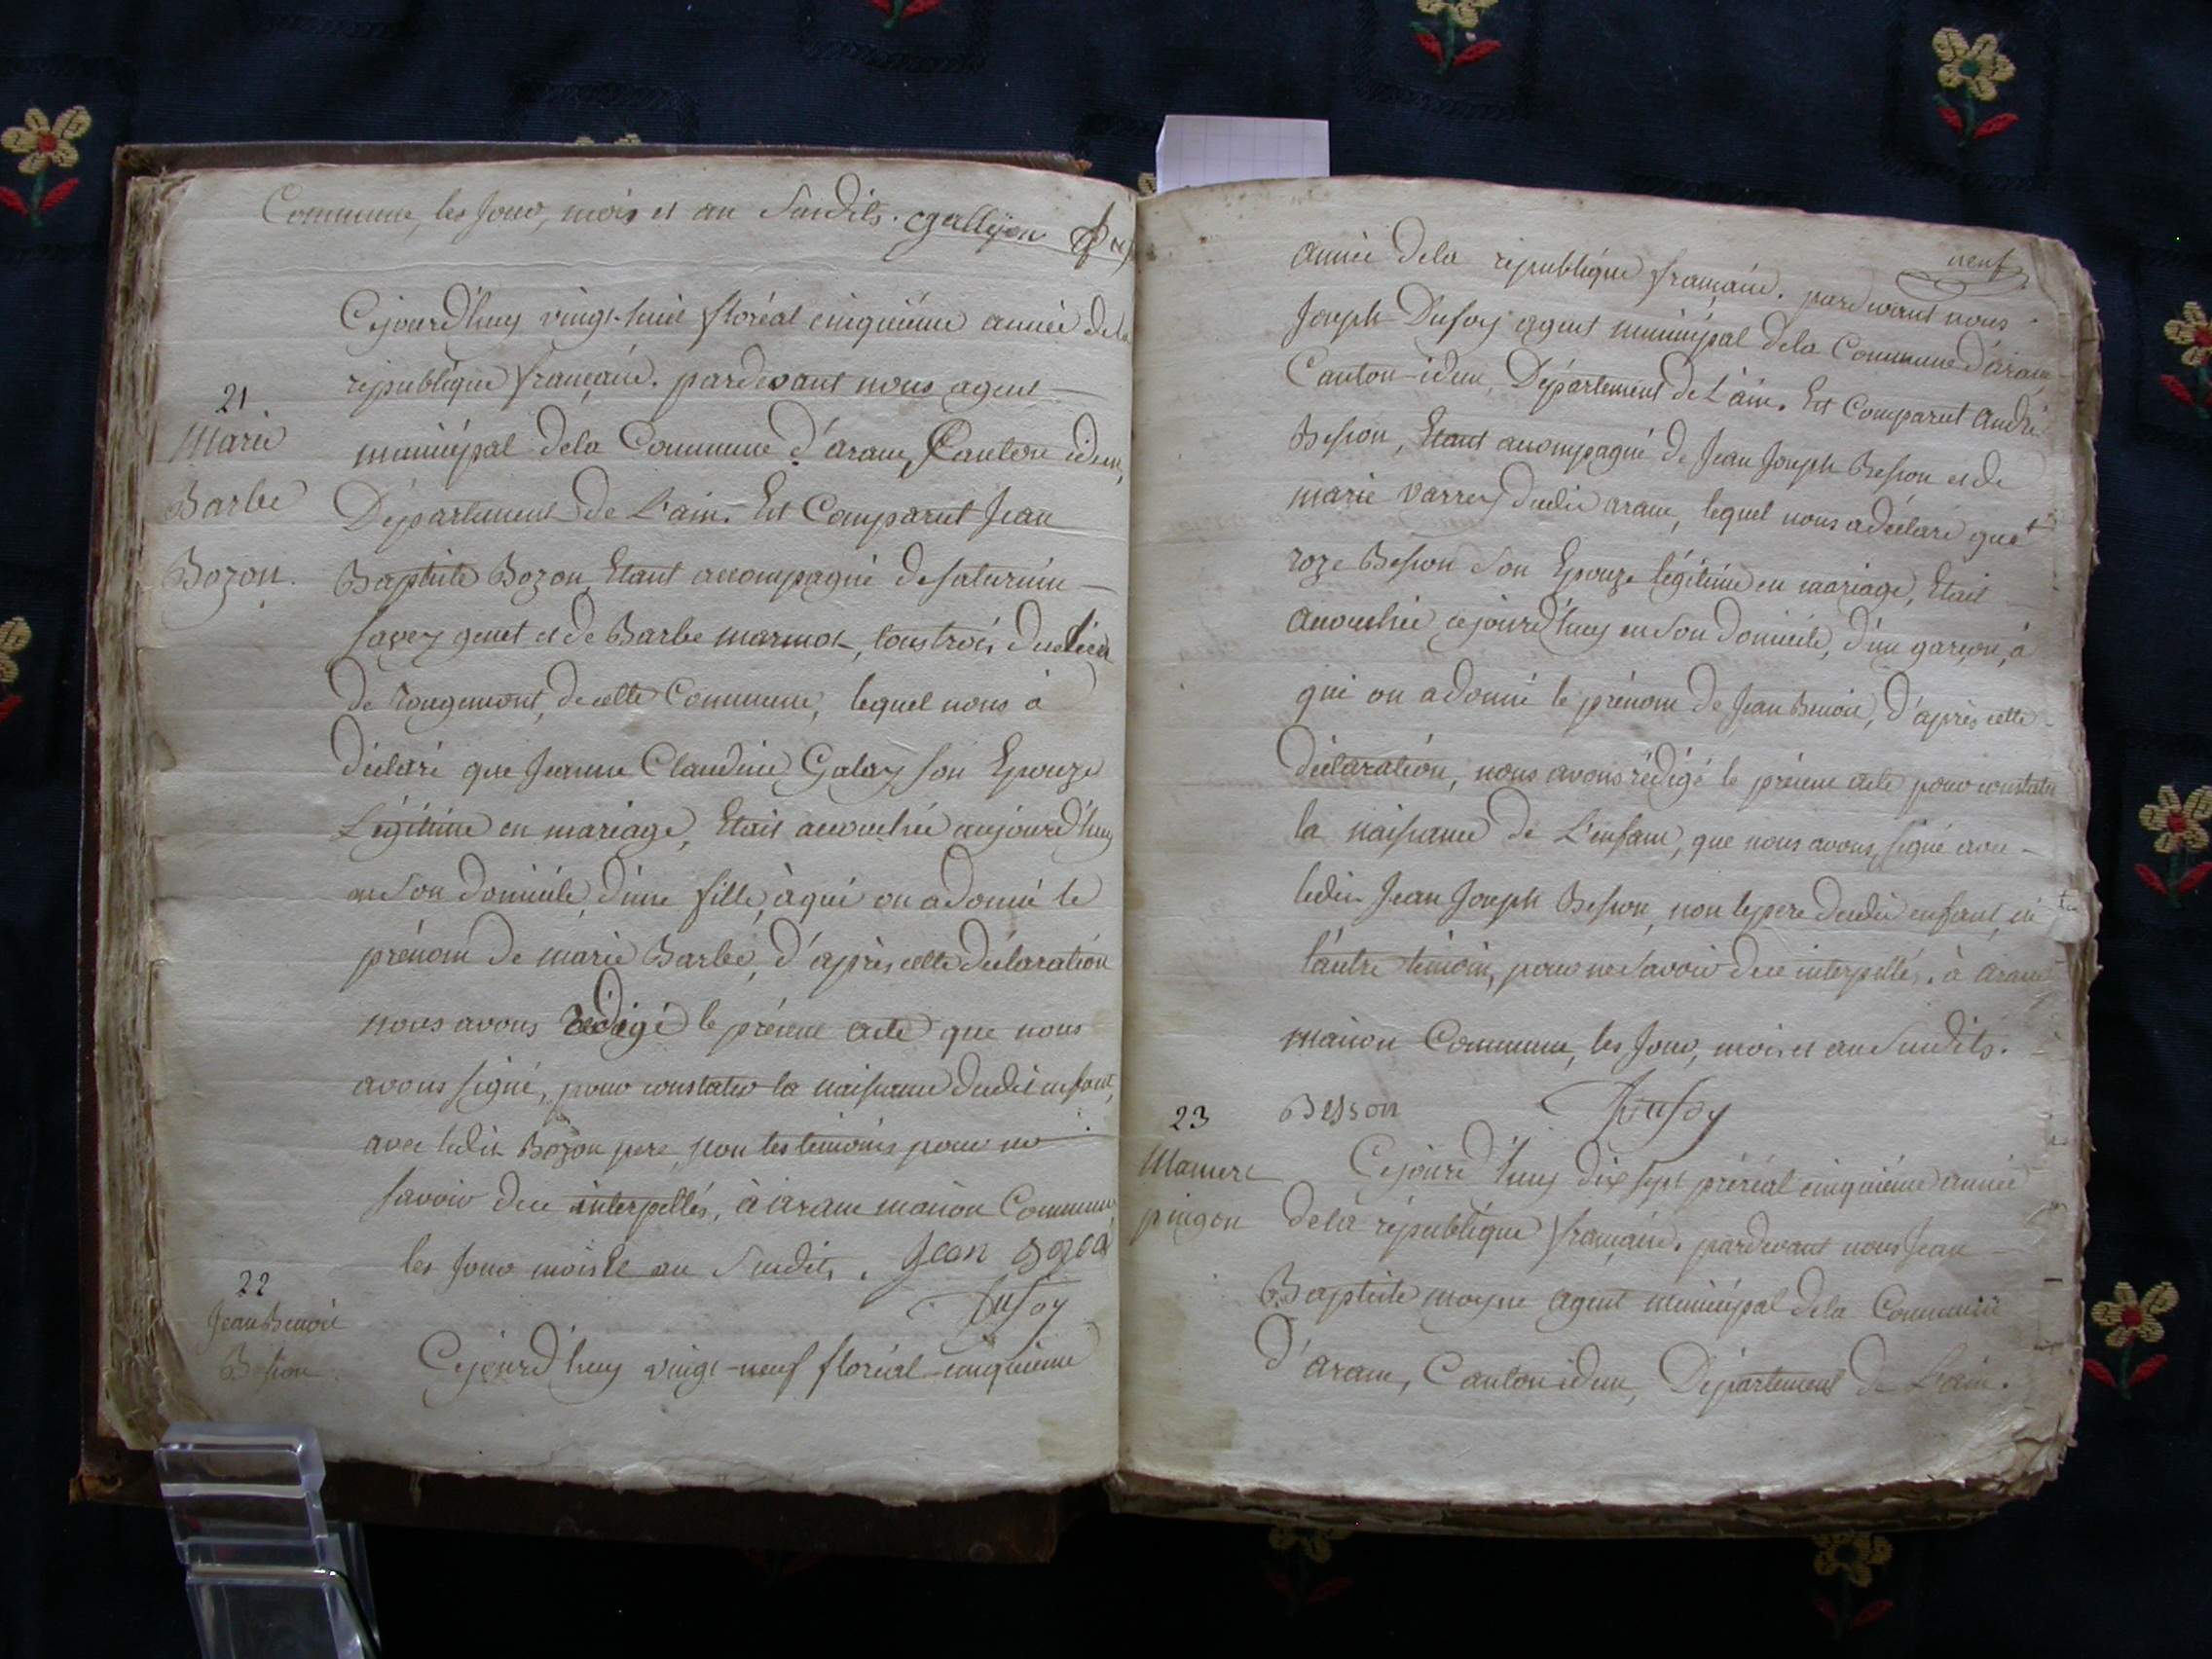 Commune, les Jour, mois et an Susdits. gallyon
Cejourd'huy vingt-huit floréal cinquième année dela
république française. pardevant nous agent
21
Marie
Barbe
Bozon.
municipal dela Commune d'aranc, Canton idem,
Département de L'ain. Est Comparut Jean
Baptiste Bozon, Etant accompagné de saturnin
savey genet et de Barbe marmot, tous trois du lieu
de rougemont, de cette Commune, lequel nous à
déclaré que Jeanne Claudine Galay son Epouze
Légitime en mariage, Etait accouchée aujourd'huy
en Son domicile, d'une fille, à qui on a donné le
prénom de marie Barbe, d'après cette déclaration
nous avons rédigé le présent acte que nous
avons signé, pour constater la naissance dudit enfant,
avec ledit Bozon pere, non les temoins pour ne
savoir de ce interpellés, à aranc maison Commune
les Jour mois et an Susdits. Jean Bozon
Dufoy
22
Jean Benoit
Besson
Cejourd'huy vingt-neuf floréal cinquième
neuf
année dela république française. pardevant nous
Joseph Dufoy agent municipal dela Commune d'aranc
Canton idem, Département de L'ain. Est Comparut andré
Besson, Etant accompagné de Jean Joseph Besson et de
marie varrey dudit aranc, lequel nous a déclaré que
roze Besson Son Epouze légitime en mariage, Etait
accouchée cejourd'huy en Son domicile, d'un garçon, à
qui on a donné le prénom de Jean Benoit, d'après cette
déclaration, nous avons rédigé le présent acte pour constater
la naissance de L'enfant, que nous avons signé avec
ledit Jean Joseph Besson, non le pere dudit enfant, ni
l'autre témoin, pour ne Savoir de ce interpellés. à aranc
maison Commune, les Jour, mois et an Susdits.
Besson Dufoy
23
Mamert
pingon
Cejourd'huy dix sept préréal cinquième année
dela république française. pardevant nous Jean
Baptiste moyne agent municipal dela Commune
d'aranc, Canton idem, Département de L'ain.